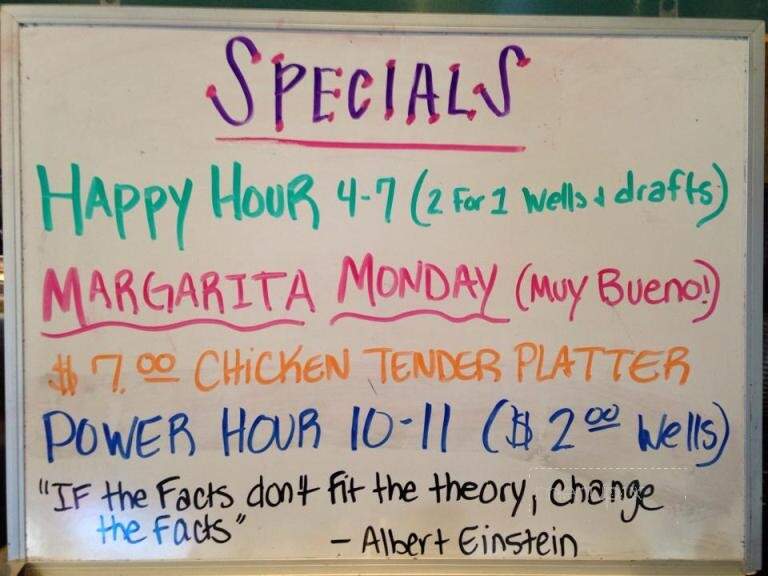 SPECIALS
HAPPY HOUR 4-7 (2 For 1 Wells & drafts)
MARGARITA MONDAY (MUY BUENO!)
$7.00 CHICKEN TENDER PLATTER
POWER HOUR 10-11 ($2.00 Wells)
"IF the Facts don't Fit the theory, change
the Facts"
- Albert Einstein